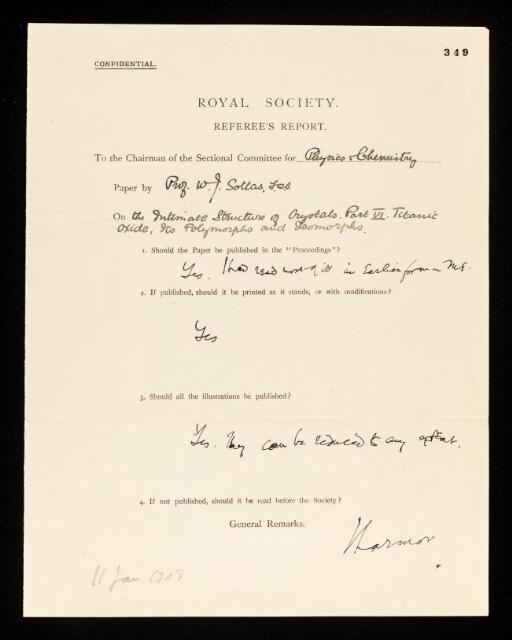 349
CONFIDENTIAL.
ROYAL SOCIETY.
REFEREE'S REPORT.
To the Chairman of the Sectional Committee for Physics & Chemistry
Paper by Prof. W. J. Sollas, F.R.S.
On the Intimate Structure of Crystals. Part VI. Titanic
Oxide, Its Polymorphs and Isomorphs.
1. Should the Paper be published in the "Proceedings"?
Yes. I had read most of it in earlier form in MS.
2. If published, should it be printed as it stands, or with modifications?
Yes
3. Should all the illustrations be published?
Yes. They can be reduced to any extent.
4. If not published, should it be read before the Society?
General Remarks.
J Larmor
11 Jan